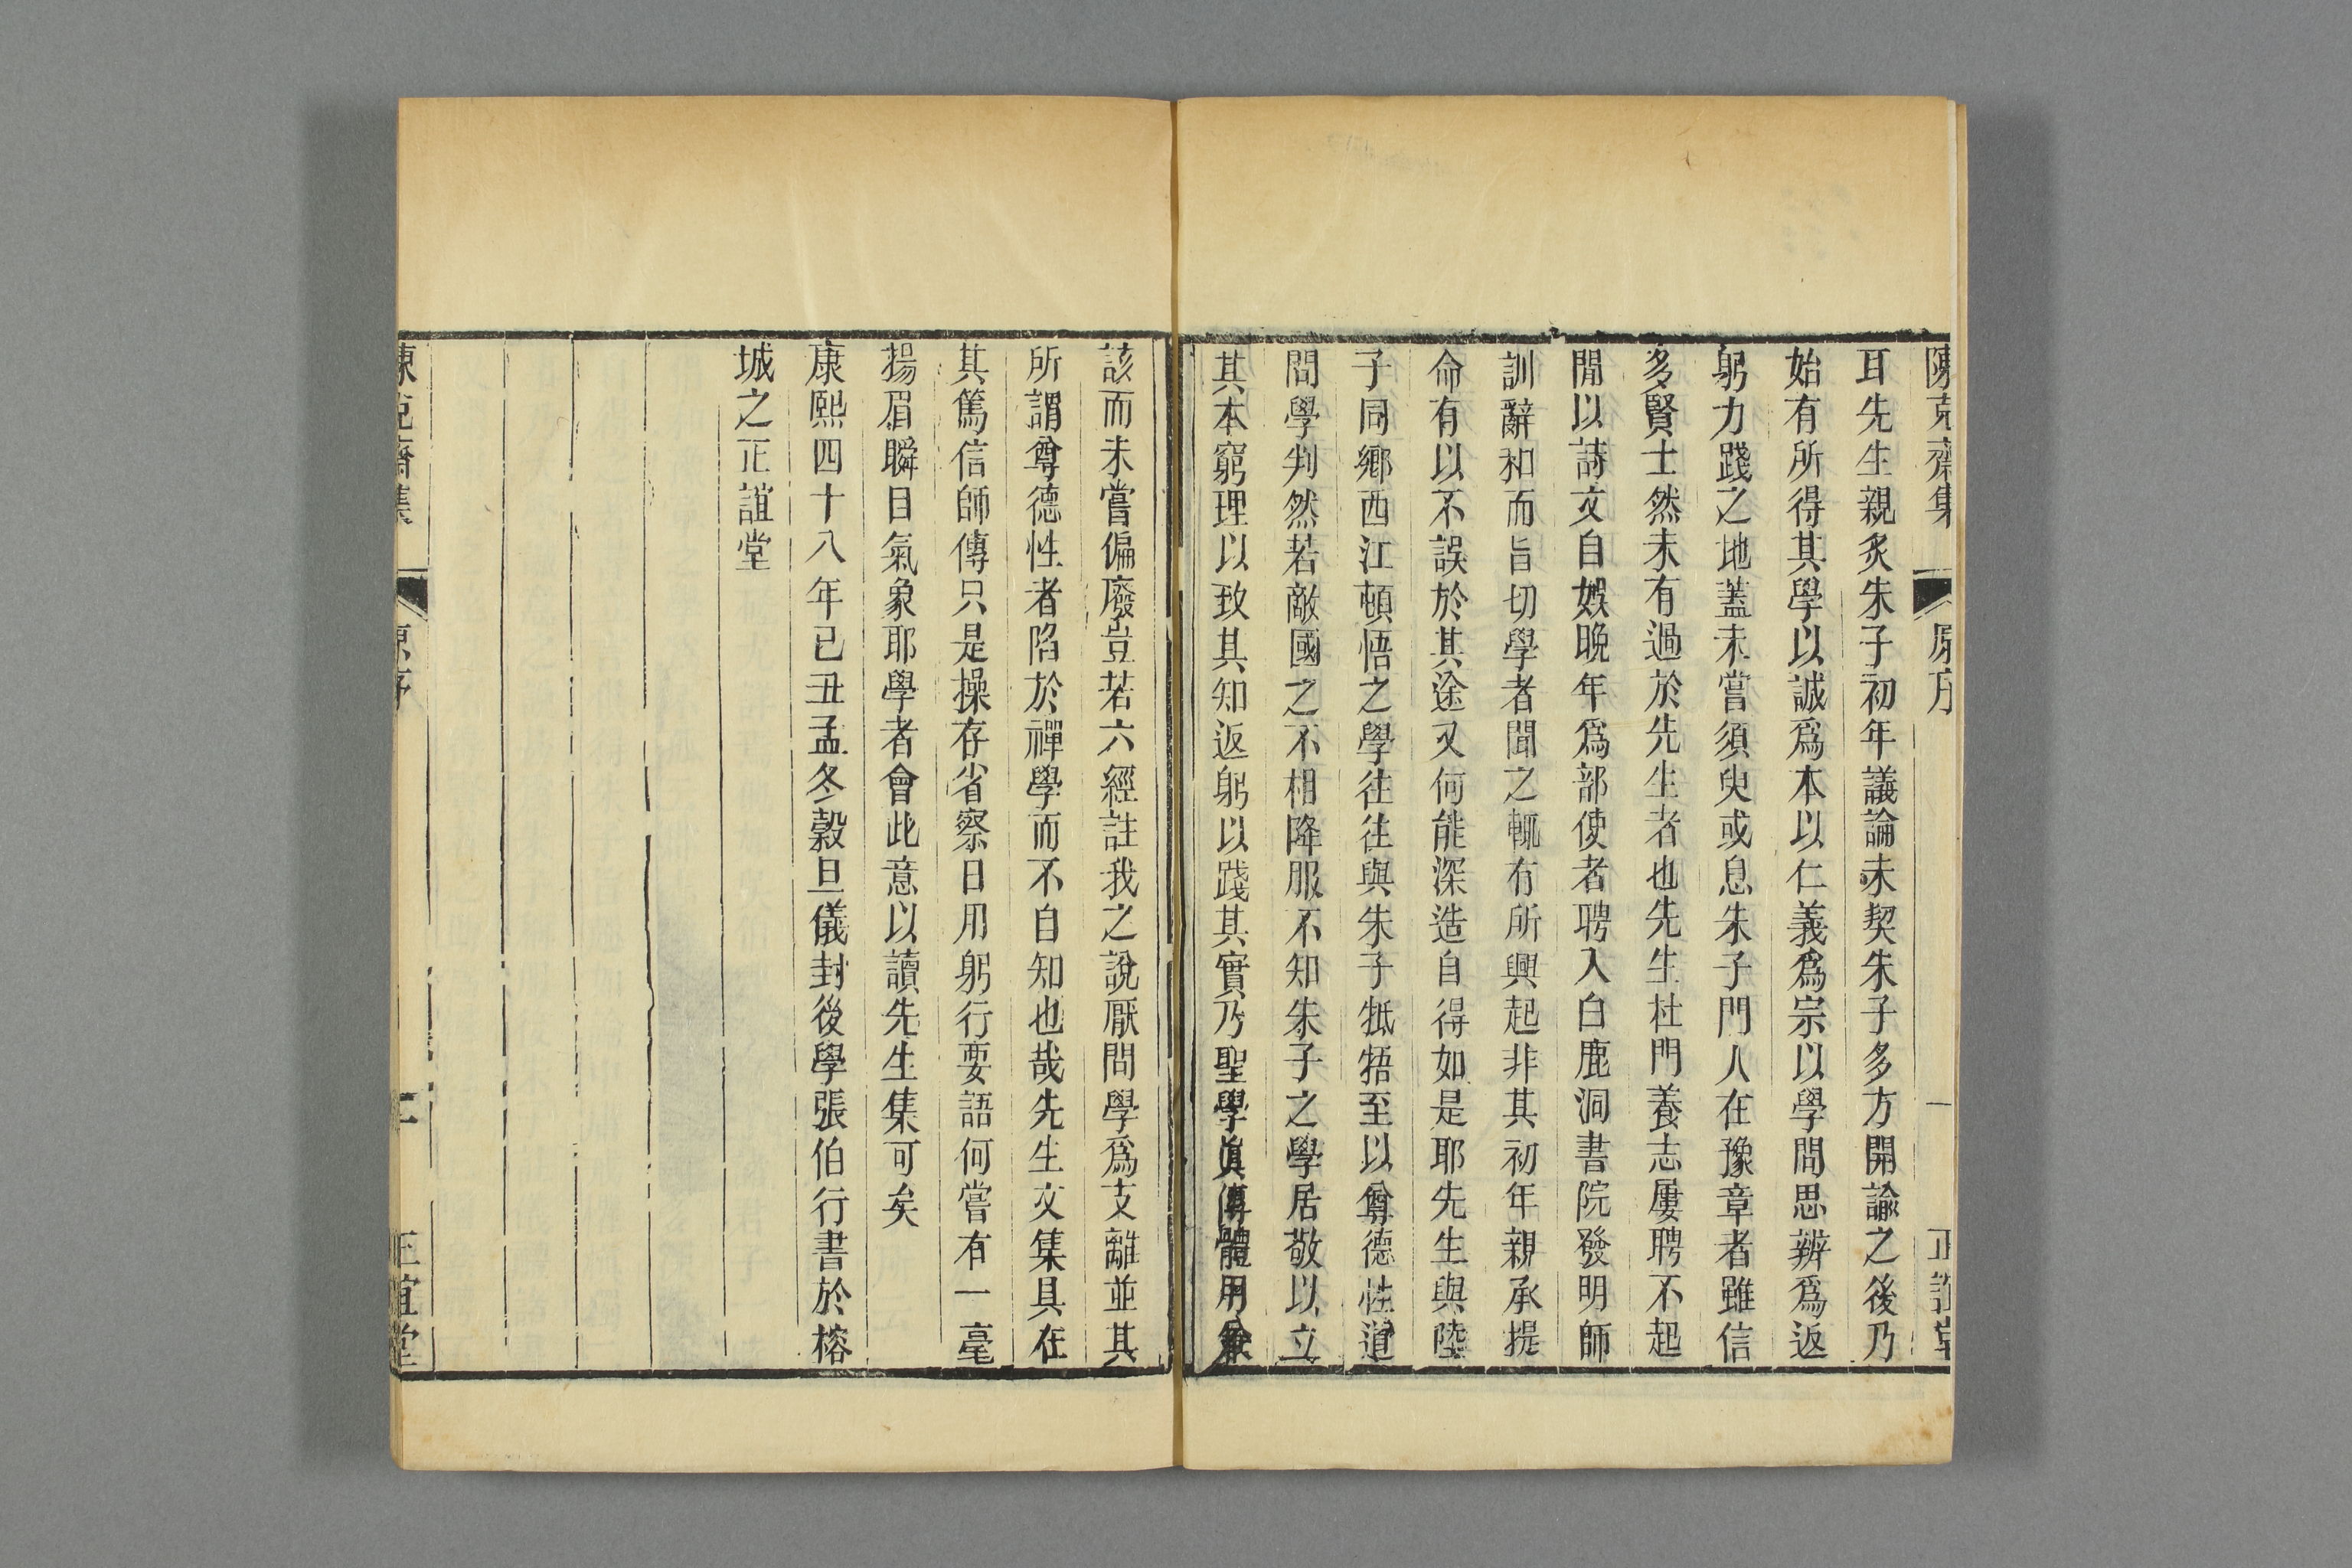 陳克齋集 原序 一 正誼堂
耳先生親炙朱子初年議論未契朱子多方開諭之後乃
始有所得其學以誠爲本以仁義爲宗以學問思辨爲返
躬力踐之地蓋未嘗須臾或息朱子門人在豫章者雖信
多賢士然未有過於先生者也先生杜門養志屢聘不起
閒以詩文自娛晚年爲部使者聘入白鹿洞書院發明師
訓辭和而旨切學者聞之輒有所興起非其初年親承提
命有以不誤於其途又何能深造自得如是耶先生與陸
子同鄉西江頓悟之學往往與朱子牴牾至以尊德性道
問學判然若敵國之不相降服不知朱子之學居敬以立
其本窮理以致其知返躬以踐其實乃聖學眞傳體用兼
該而未嘗偏廢豈若六經註我之說厭問學爲支離並其
所謂尊德性者陷於禪學而不自知也哉先生文集具在
其篤信師傳只是操存省察日用躬行要語何嘗有一毫
揚眉瞬目氣象耶學者會此意以讀先生集可矣
康熙四十八年已丑孟冬穀旦儀封後學張伯行書於榕
城之正誼堂
陳克齋集 原序 二 正誼堂